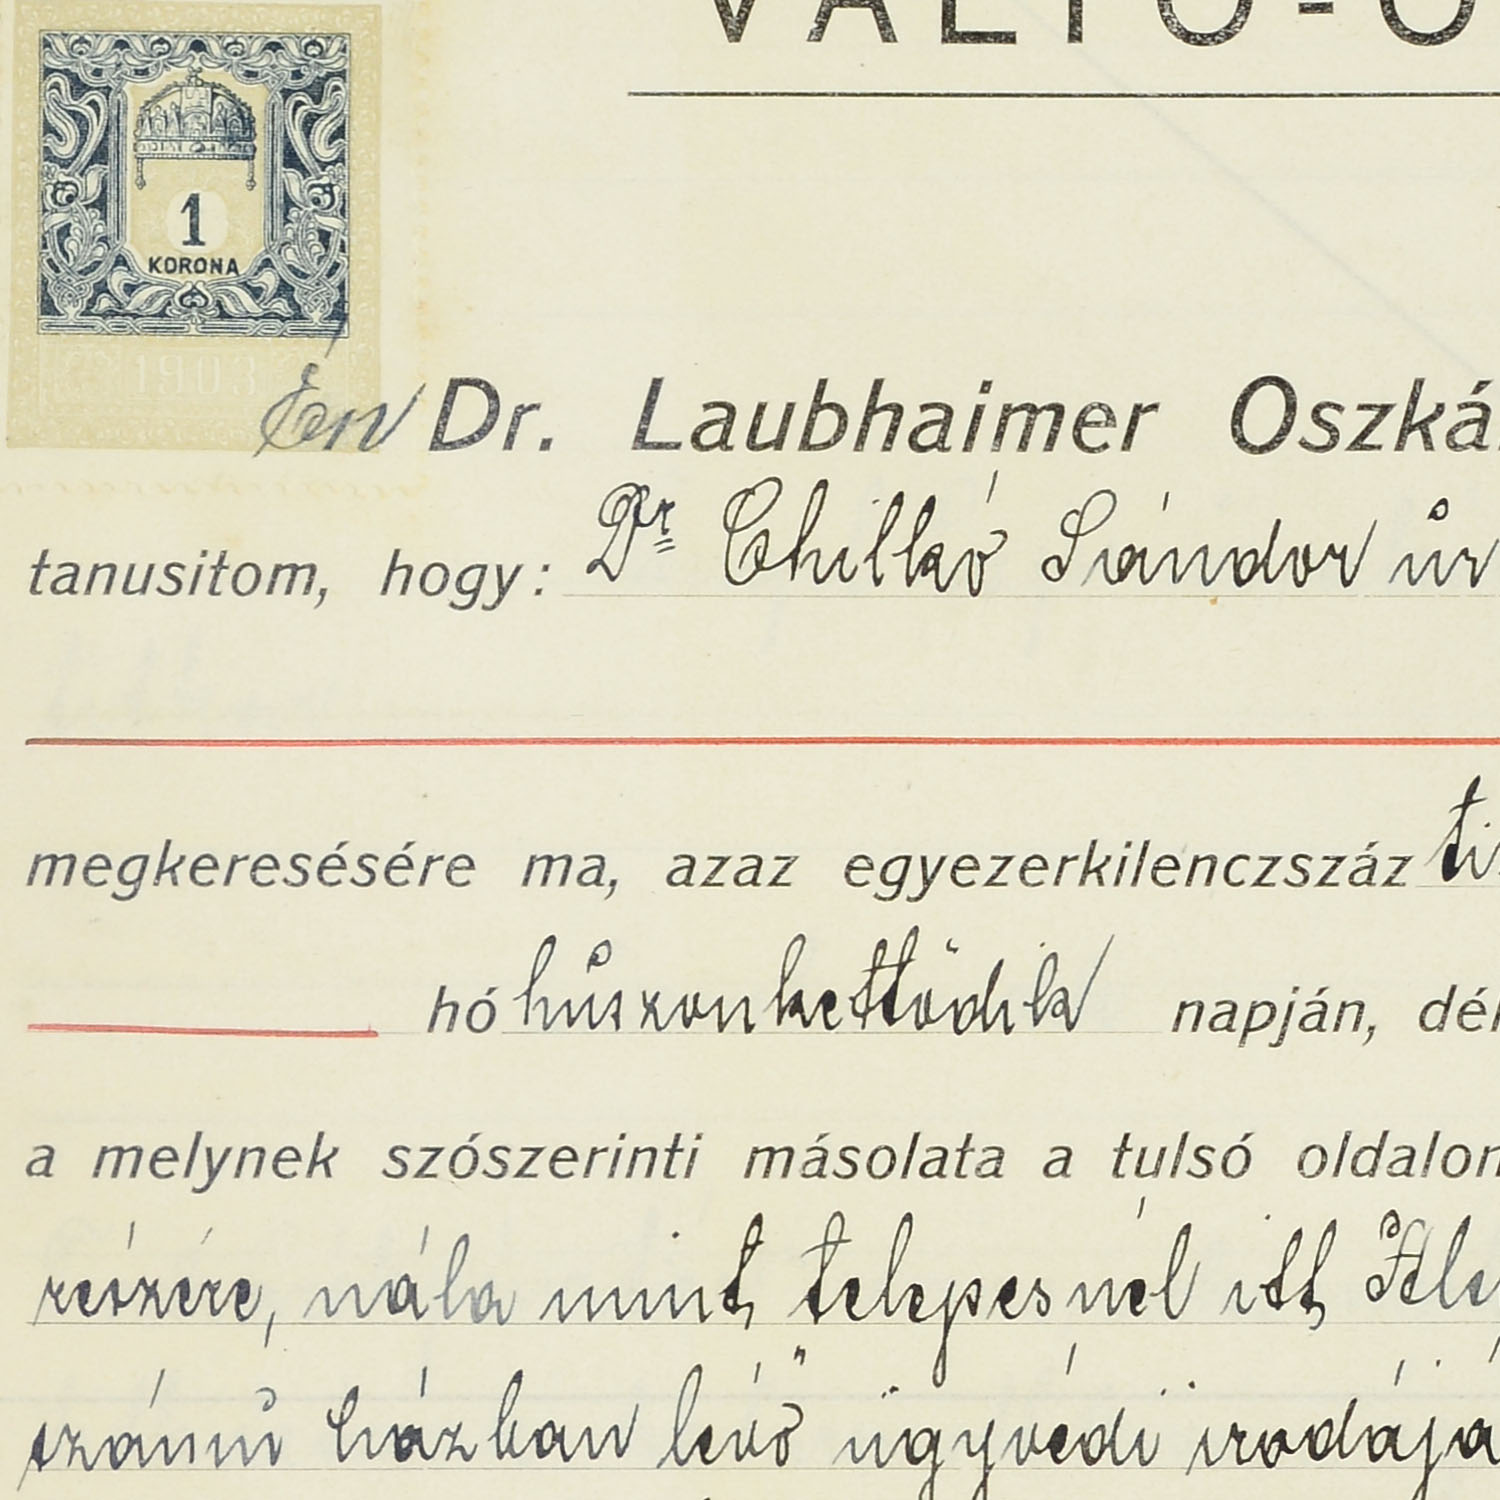 VÁLTÓ-Ó
1
KORONA
1903
Én Dr. Laubhaimer Oszká
tanusitom, hogy: Dr Chilkó Sándor úr
megkeresésére ma, azaz egyezerkilenczszáz ti
hó húszonkettödik napján, dél
a melynek szószerinti másolata a tulsó oldalon
részére, nála mint telepesnél itt
számú házban levő ügyvédi irodájá